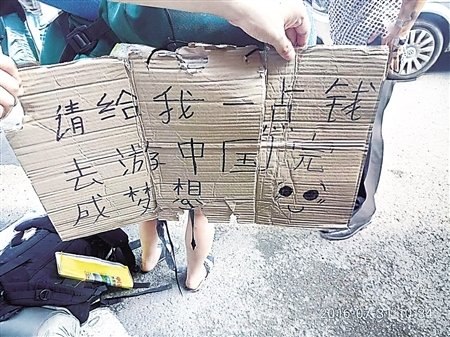 请给我一点钱
去游中国完
成梦想
2016-07-31 10:34